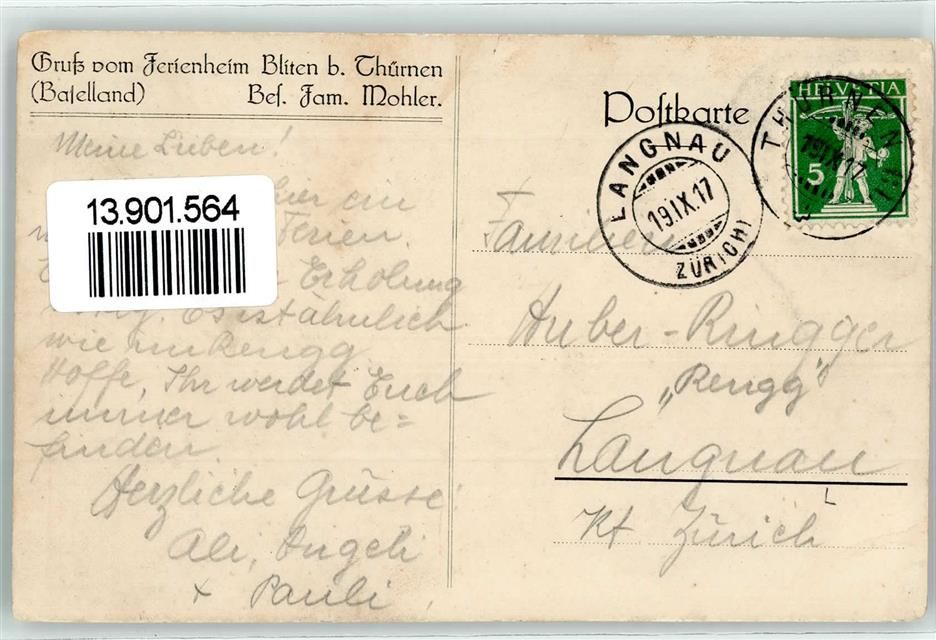 Gruß vom Ferienheim Bliten b. Thürnen
(Baselland) Bes. Fam. Mohler.
Meine Lieben!
hier ein
Ferien.
Erholung
Es ist ähnlich
wie im Rengg
Hoffe, Ihr werdet Euch
immer wohl be=
finden.
Herzliche Grüsse
Angeli
+ Pauli
13.901.564
Postkarte
HELVETIA
5
THÜRNEN
19.IX.17
LANGNAU
19.IX.17
(ZÜRICH)
Familien
Huber-Ringger
„Rengg"
Langnau
Kt Zürich